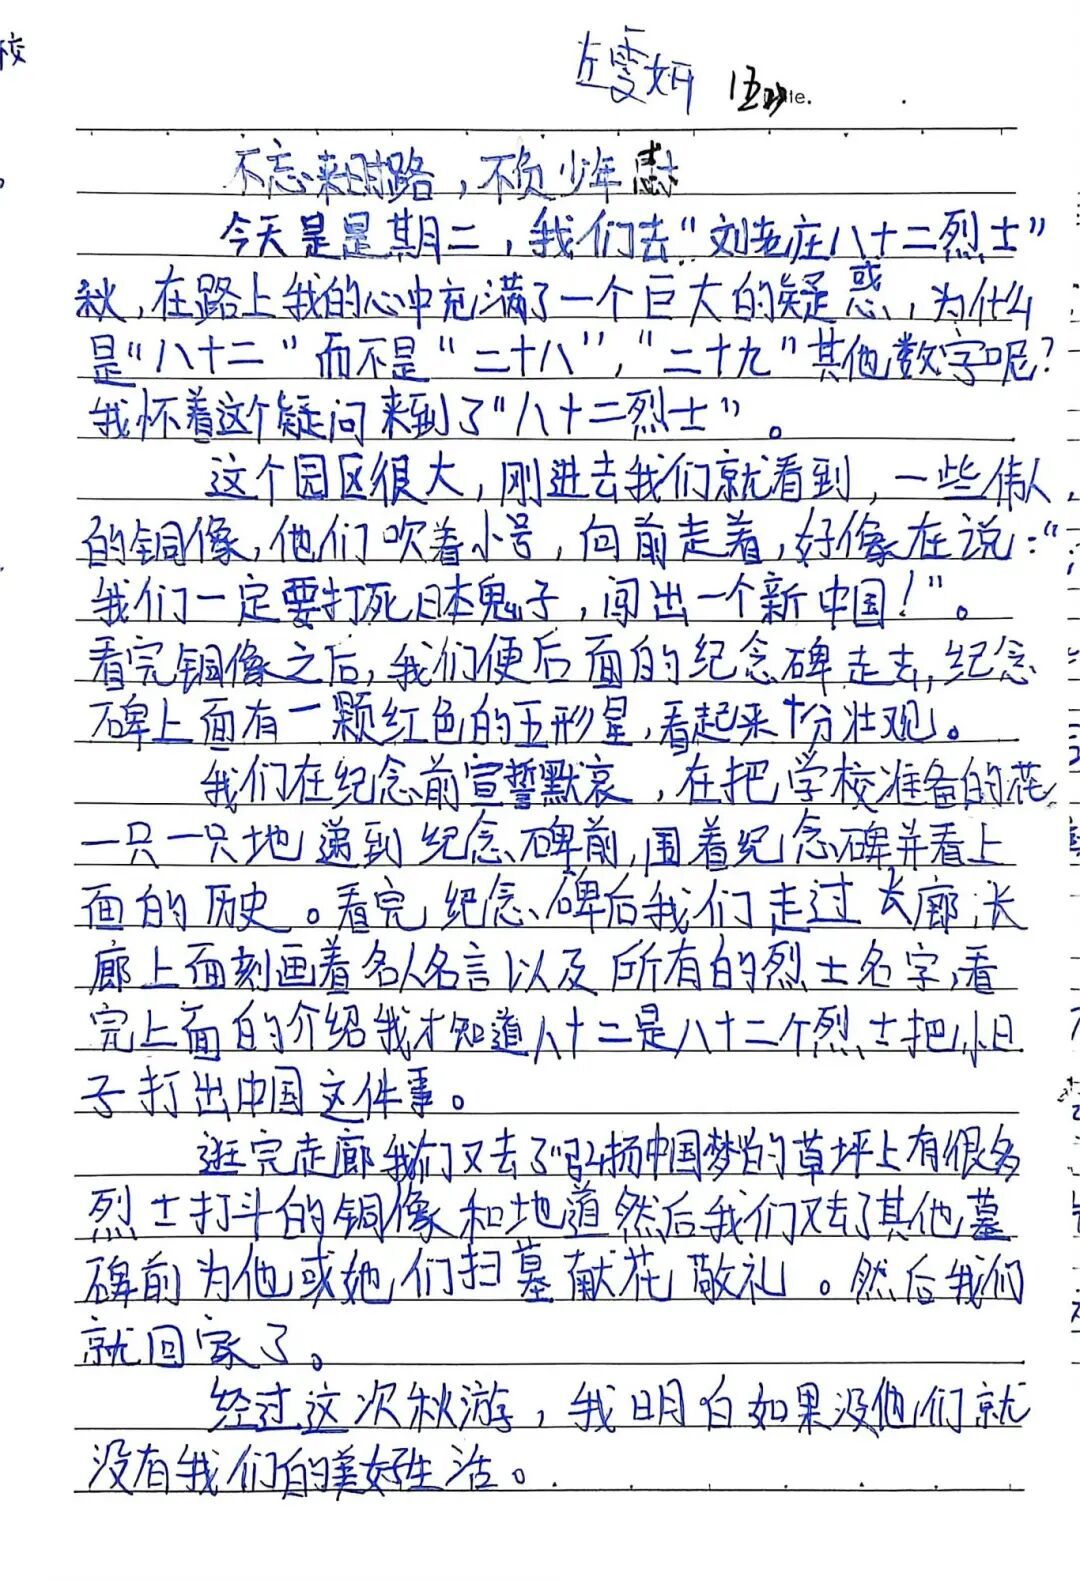 校
左雯妍 五
不忘来时路，不负少年志
今天是是期二，我们去“刘老庄八十二烈士”
秋，在路上我的心中充满了一个巨大的疑惑，为什么
是“八十二”而不是“二十八”，“二十九”其他数字呢？
我怀着这个疑问来到了“八十二烈士”。
这个园区很大，刚进去我们就看到，一些伟人
的铜像，他们吹着小号，向前走着，好像在说：“
我们一定要打死日本鬼子，闯出一个新中国！”。
看完铜像之后，我们便后面的纪念碑走去，纪念
碑上面有一颗红色的五形星，看起来十分壮观。
我们在纪念前宣誓默哀，在把学校准备的花
一只一只地递到纪念碑前，围着纪念碑并看上
面的历史。看完纪念碑后我们走过长廊，长
廊上面刻画着名人名言以及所有的烈士名字，看
完上面的介绍我才知道八十二是八十二个烈士把小日
子打出中国这件事。
逛完走廊我们又去了“弘扬中国梦”的草坪上有很多
烈士打斗的铜像和地道然后我们又去了其他墓
碑前为他或她们扫墓献花敬礼。然后我们
就回家了。
经过这次秋游，我明白如果没他们就
没有我们的美好生活。